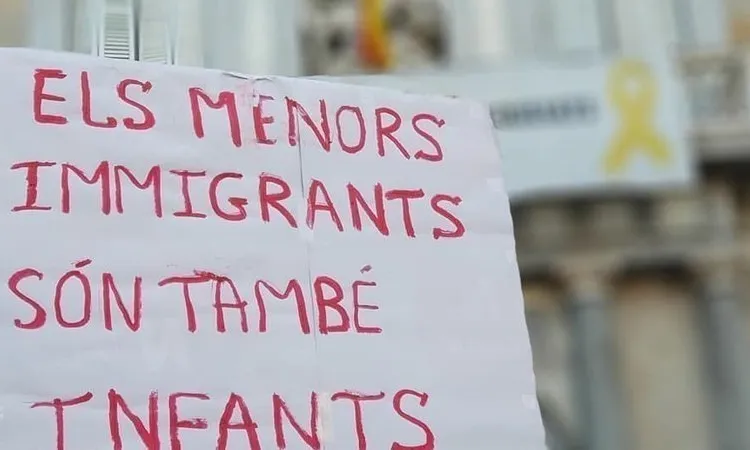 ELS MENORS
IMMIGRANTS
SÓN TAMBÉ
INFANTS